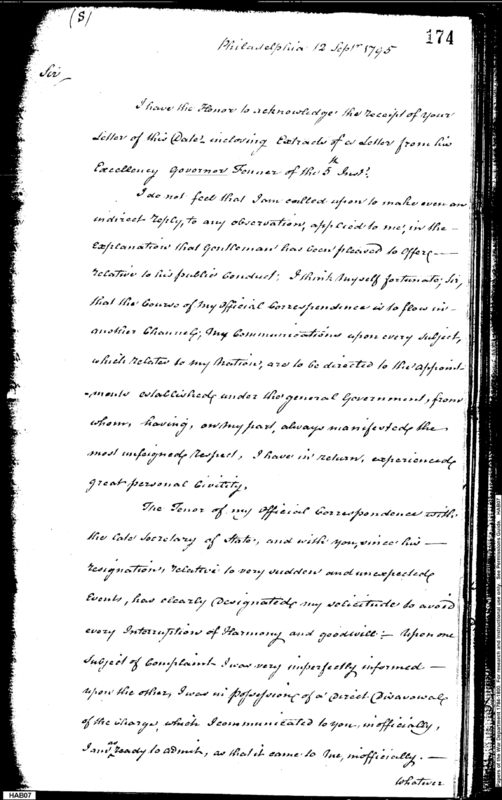 (S)
174
Philadelphia 12 Sepr 1795
Sir,
I have the Honor to acknowledge the receipt of your
Letter of this Date inclosing Extracts of a Letter from his
Excellency Governor Fenner of the 5th Inst.
I do not feel that I am called upon to make even an
indirect reply, to any observation, applied to me, in the
explanation that Gentleman has been pleased to offer —
relative to his public Conduct; I think myself fortunate, Sir,
that the Course of my official Correspondence is to flow in
another Channel; My Communications upon every Subject,
which relates to my Nation, are to be directed to the appoint
-ments established under the general Government, from
whom, having, on my part, always manifested the
most unfeigned respect, I have in return, experienced
great personal Civility.
The Tenor of my official Correspondence with
the late Secretary of State, and with you, since his —
resignation, relative to very sudden and unexpected
Events, has clearly designated my solicitude to avoid
every Interruption of Harmony and goodwill :— Upon one
Subject of Complaint I was very imperfectly informed —
upon the other, I was in possession of a Direct Disavowal
of the charge, which I communicated to you, inofficially,
I am as ready to admit, as that it came to me, inofficially. —
Whatever
HAB07